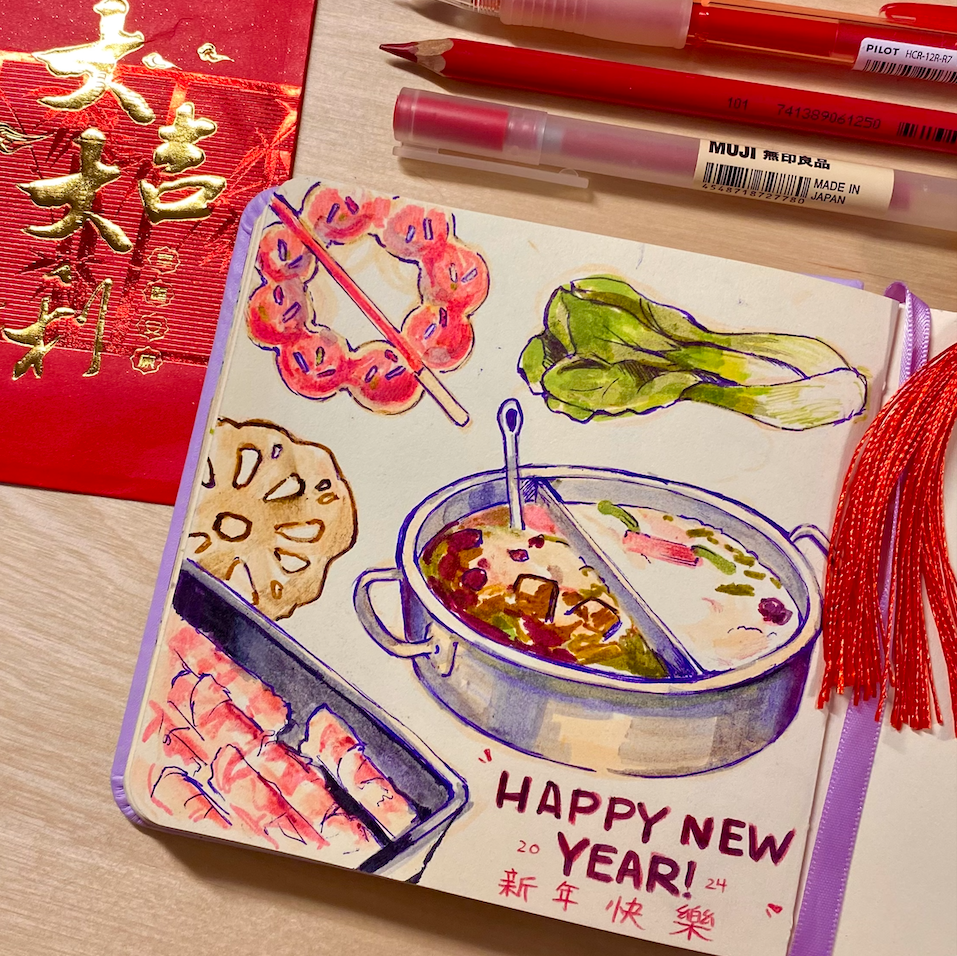 大吉
大利
PILOT HCR-12R-R7
101 741389061250
MUJI 無印良品
4548718727780
MADE IN
JAPAN
HAPPY NEW
20 YEAR! 24
新年快樂